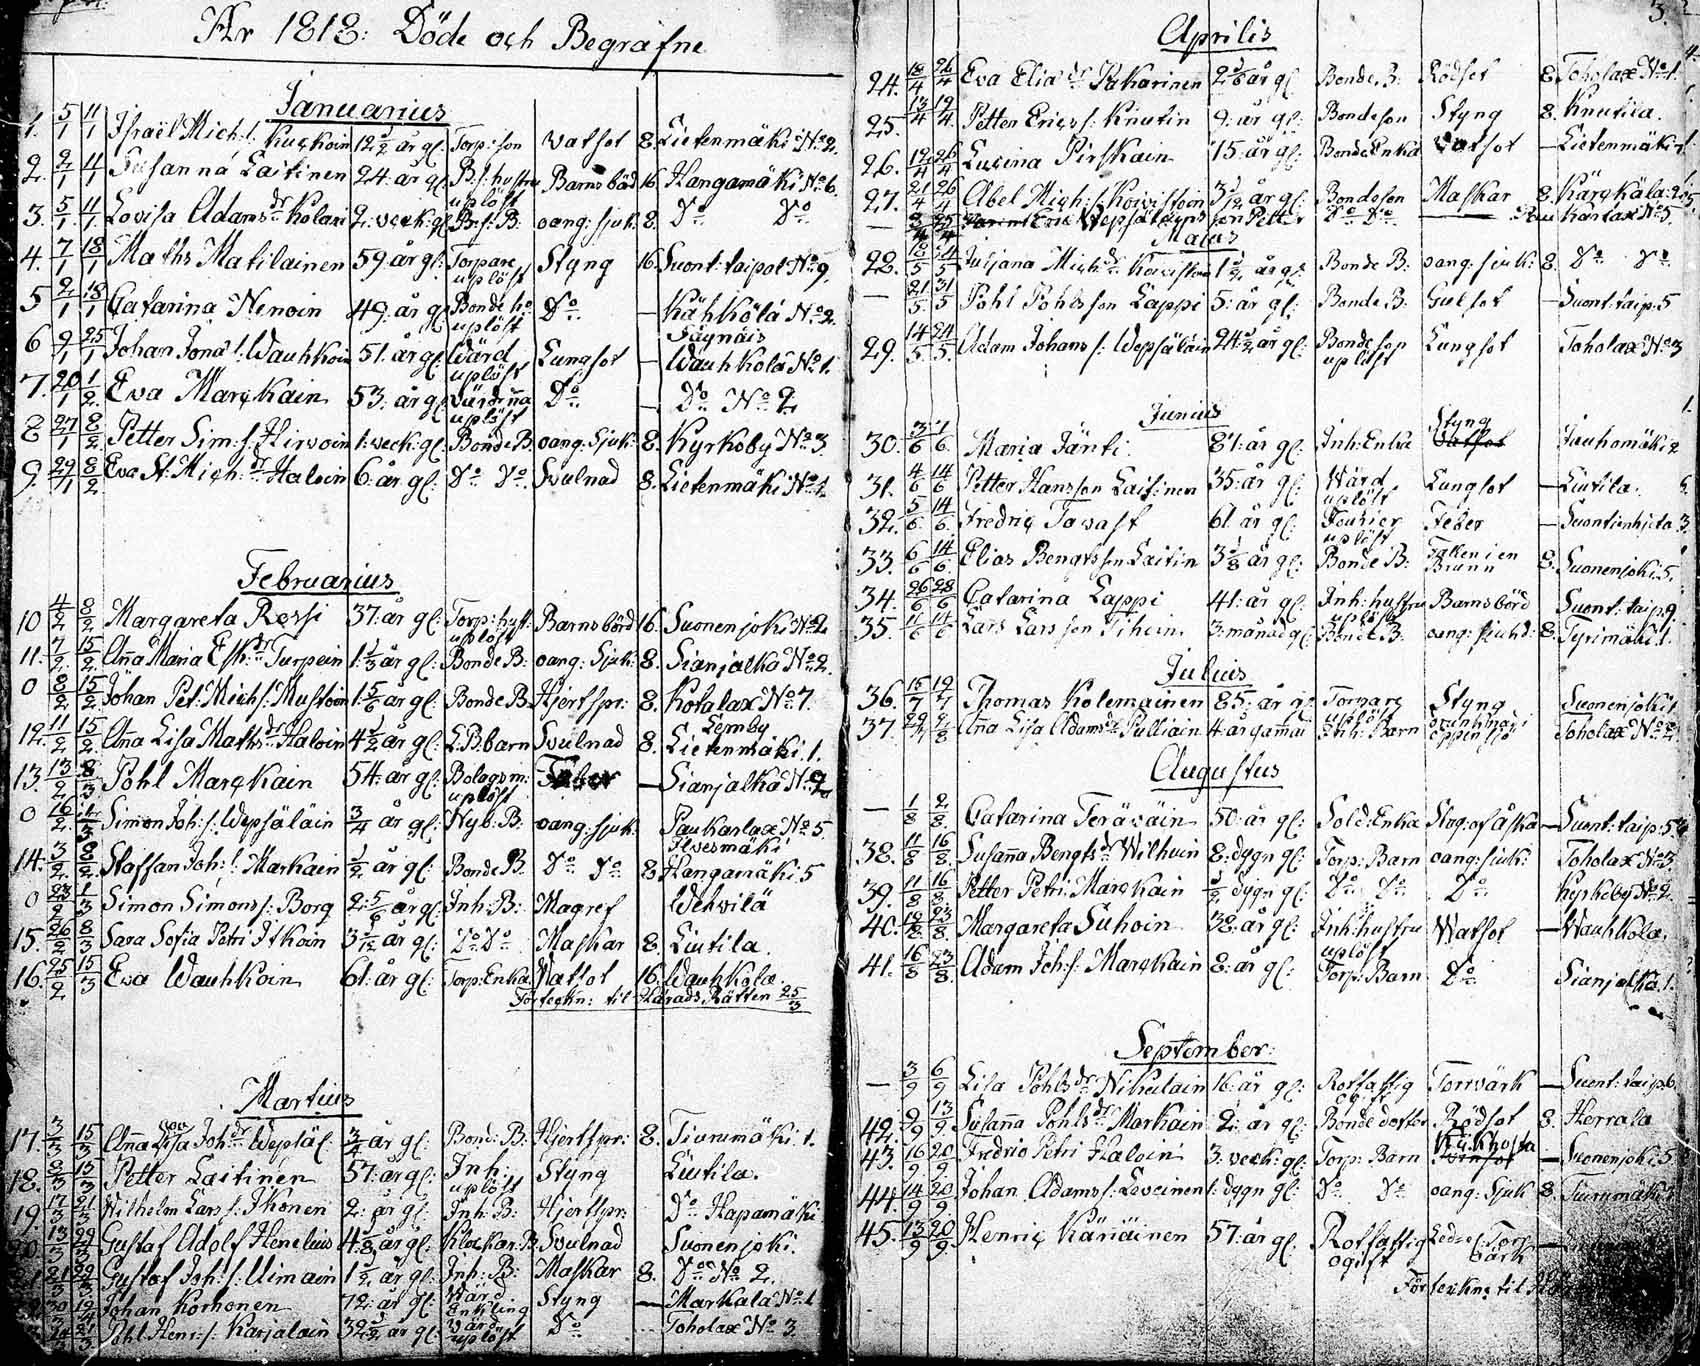 År 1818: Döde och Begrafne
Januarius
1. 5/1 11/1 Israël Mich:s: Kuckoin 12 1/2 år gl: Torp: son Vatsot 8. Lietenmäki No 2.
2. 2/1 11/1 Susanna Laitinen 24: år gl B:s: hustru uplöst Barnsbörd 16 Hangamäki No 6.
3. 5/1 11/1 Lovisa Adams dr Kolari 2: veck: gl B:s: B: oang: sjuk: 8. Do Do
4. 7/1 18/1 Maths Matilainen 59 år gl: Torpare uplöst Styng 16. Suont: taipal No 9.
5 2/1 18/1 Catarina Nenoin 49: år gl Bonde h: uplöst Do — Kähkölä No 2.
6 9/1 25/1 Johan Jona s: Wauhkoin 51. år gl: Wärd uplöst Lungsot — Säynäis Wauhkola No 1.
7. 20/1 1/2 Eva Marckain 53: år gl Värd:na uplöst Do — Do No 2
8 27/1 8/2 Petter Sim: s: Hirvoin 1: veck: gl: Bonde B oang: Sjuk: 8. Kyrkoby No 3
9 29/1 8/2 Eva St: Mich: dr Haloin 6: år: gl: Do Do Svulnad 8. Lietenmäki No 1.
Februarius
10 4/2 8/2 Margareta Rossi 37: år gl: Torp: hust: uplöst Barnsbörd 16. Suonenjoki No 2.
11. 7/2 15/2 Anna Maria Esk: dr Turpein 1 1/3 år gl: Bonde B: oang: Sjuk: 8. Sianjalka No 2.
0 8/2 15/2 Johan Pet: Mich: s: Mustoin 1 5/6 år gl: Bonde B. Hjertspr: 8. Kotalax No 7.
12. 11/2 15/2 Anna Lisa Maths dr Haloin 4 1/2 år gl: L. B: barn Svulnad 8. Lemby Lietenmäki 1.
13. 13/2 8/3 Pohl Marckain 54: år gl: Bolagsm: uplöst Feber — Sianjalka No 2
0 16/2 Simon Joh: s: Wepsäläin 3/4 år gl: Nyb: B: oang: sjuk: Paukarlax No 5.
14. 3/2 8/2 Staffan Joh: s: Markain 1/2 år gl: Bonde B. Do Do 8 Ilvesmäki Hangamäki 5
0 23/2 1/3 Simon Simons s: Borg 2 5/6 år gl: Inh: B: Magref Wehvilä
15. 26/2 8/3 Sara Sofia Petri Itkoin år gl: Do Do Maskar 8 Liutila.
16. 25/2 15/3 Eva Wauhkoin 61: år gl: Torp: Enka Watsot 16. Wauhkola.
Förteckn: til Härads Rätten 25/3
Martius
17. 3/3 15/3 Anna Lisa Joh: dr Wepsäl: 3/4 år gl: Bond: B: Hjertspr: 8. Tiurumäki: 1.
18. 15/3 Petter Laitinen 57: år gl: Inh: uplöst Styng Liutila.
19. 17/3 21/3 Wilhelm Lars s: Ikonen 2: år gl: Inh: B: Hjertspr: Do Hapamäki
Gustaf Adolf Henelius år gl: Klockar: B. Svulnad Suonenjoki.
Gustaf Joh: s: Uimain 1 1/2 år gl: Inh: B: Maskar 8. Do No 2.
Johan Korhonen 72: år gl: Wärd Enkling Styng — Markala No 1
Pohl Henr: s: Karjalain 32 1/2 år gl: Värd uplöst Do Toholax No 3.
3.
Aprilis
24. 18/4 26/4 Eva Elia dr Pakarinen år gl: Bonde B: Rödsot 8. Toholax No 1.
25. 13/4 19/4 Petter Erics s: Knutin 9: år gl: Bondeson Styng 8. Knutila.
26. 19/4 26/4 Lucina Pirskain 15: år gl: Bonde Enka Vatsot — Lietenmäki
27. 21/4 26/4 Abel Mich: s: Koivistoin år gl: Bondeson Maskar 8. Kärckälä: 2.
— Wepsäläins son Petter Do Do Paukarlax No 5.
Maius
28. 18/5 24/5 Juliana Mich: dr Koivistoin 1 1/2 år gl: Bonde B: oang: sjuk: 8. Do Do
— 21/5 31/5 Pohl Pohlsson Lappi 5: år gl: Bonde B. Gulsot — Suont: taip: 5
29. 14/5 24/5 Adam Johans s: Wepsäläin 24 1/2 år gl: Bondeson uplöst Lungsot Toholax No 3
Junius
30. 3/6 7/6 Maria Jänti 81: år gl: Inh: Enka Styng Jauhomäki 2
31. 4/6 14/6 Petter Hansson Laitinen 35: år gl: Wärd uplöst Lungsot — Liutila.
32. 5/6 14/6 Fredric Tavast 61. år gl: Fourier uplöst Feber — Suontienhieta 3.
33. 6/6 14/6 Elias Bengtsson Laitin år gl: Bonde B: Fallen i en Brunn 8. Suonenjoki 5.
34. 26/6 28/6 Catarina Lappi 41: år gl: Inh: hustru uplöst Barnsbörd Suont: taip: 9.
35. 11/6 14/6 Lars Larsson Tihoin 3: månad gl: Bonde B: oang: sjukd: 8. Tyrimäki 1.
Julius
36. 15/7 19/7 Thomas Kolemainen 85: år gl Torpare uplöst Styng Suonenjoki 1
37. 29/7 2/8 Anna Lisa Adams dr Pulliain 4 år gammal Inh: Barn drunknad i öppen sjö Toholax No 2
Augustus
— 1/8 2/8 Catarina Teräväin 50: år gl: Sold: Enka Slag: af åska — Suont: taip: 5
38. 11/8 16/8 Susanna Bengts dr Wilhuin 8: dygn gl: Torp: Barn oang: sjuk: Toholax No 3.
39. 11/8 16/8 Petter Petri: Marckain 1/2 dygn gl: Do Do Do Kyrkoby No 2.
40. 19/8 23/8 Margareta Suhoin 38: år gl: Inh: hustru uplöst Watsot — Wauhkola.
41. 16/8 23/8 Adam Joh: s: Marckain 8: år gl: Torp: Barn Do Sianjalka. 1.
September:
— 3/9 6/9 Lisa Pohls dr Nikulain 16: år gl: Rotfattig ogift Torrvärk — Suont: taip: 6.
42. 9/9 13/9 Susanna Pohls dr Markain 2: år gl: Bonde dotter Rödsot 8. Herrala
43. 16/9 20/9 Fredric Petri Haloin 3: veck: gl: Torp: Barn Kikhosta — Suonenjoki 5
44. 14/9 20/9 Johan Adams s: Leveinen 1: dygn gl: Do Do oang: Sjuk 8. Tiurumäki
45. 13/9 20/9 Henric Käriäinen 57: år gl: Rotfattig ogift Ledsot: Torrvärk —
Förteckn: til